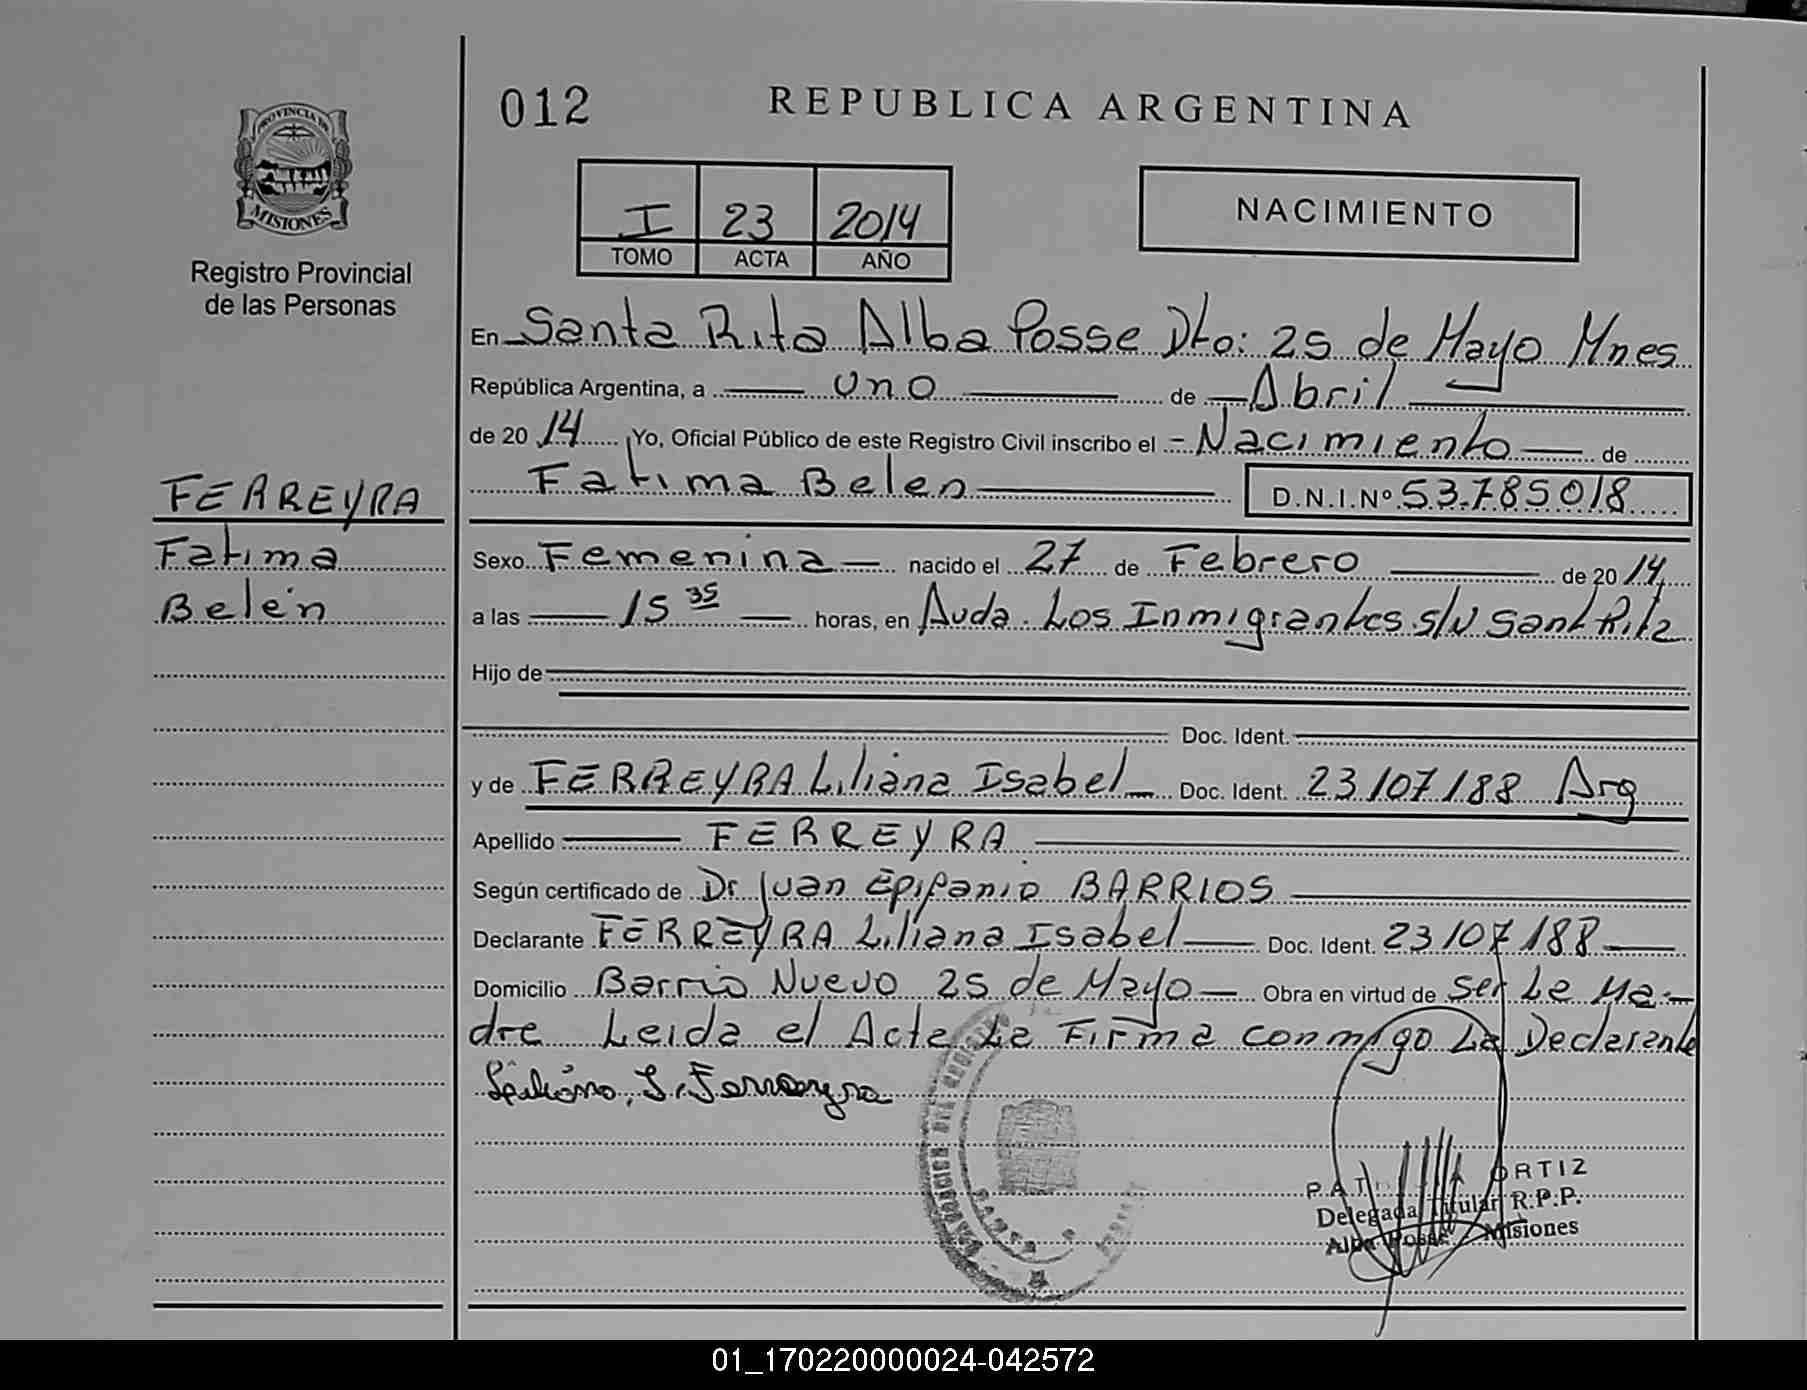 012
REPUBLICA ARGENTINA
PROVINCIA DE
MISIONES
Registro Provincial
de las Personas
I 23 2014
TOMO ACTA AÑO
NACIMIENTO
En Santa Rita Alba Posse Dto: 25 de Mayo Mnes
República Argentina, a uno de Abril
de 20 14 Yo, Oficial Público de este Registro Civil inscribo el Nacimiento de
Fatima Belen D.N.I.Nº 53.785018
FERREYRA
Fatima
Belén
Sexo Femenina nacido el 27 de Febrero de 20 14
a las 15 35 horas, en Avda. Los Inmigrantes s/N Sant Rita
Hijo de
Doc. Ident.
y de FERREYRA Liliana Isabel Doc. Ident. 23/07/188 Arg
Apellido FERREYRA
Según certificado de Dr Juan Epifanio BARRIOS
Declarante FERREYRA Liliana Isabel Doc. Ident. 23/07/188
Domicilio Barrio Nuevo 25 de Mayo Obra en virtud de ser La Ma-
dre Leida el Acta La Firma conmigo La Declarante
Liliana, I. Ferreyra
ORTIZ
Delegada Titular R.P.P.
Alba Posse - Misiones
01_170220000024-042572